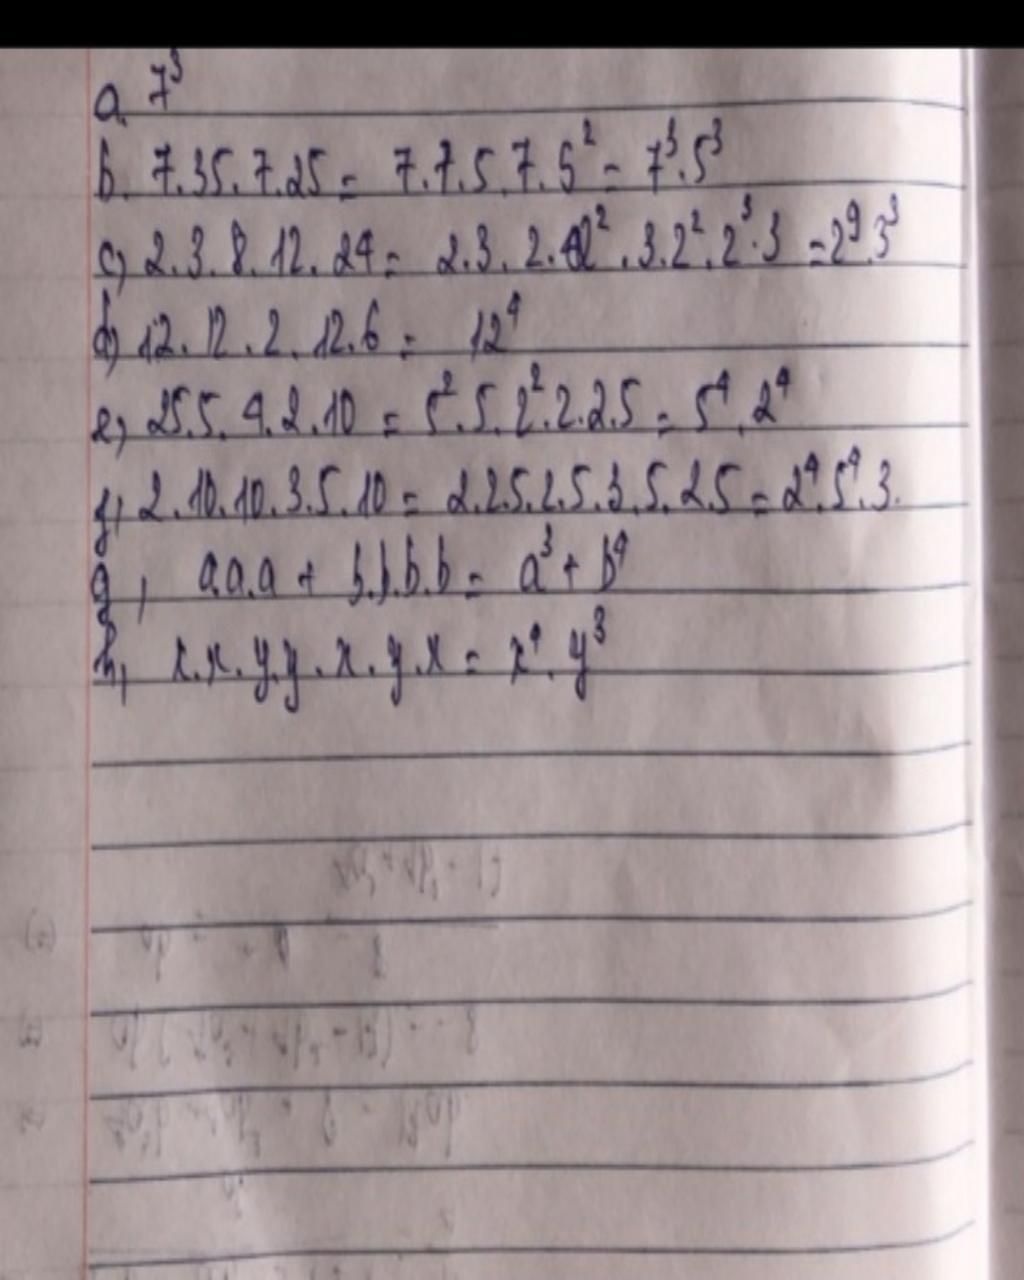 a. 7³
b. 7.35.7.25 = 7.7.5.7.5² = 7³.5³
c) 2.3.8.12.24 = 2.3.2.2².3.2².2³.3 = 2⁹.3³
d) 12.12.2.12.6 = 12⁴
e) 25.5.4.2.10 = 5².5.2².2.2.5 = 5⁴.2⁴
f) 2.10.10.3.5.10 = 2.2.5.2.5.3.5.2.5 = 2⁴.5⁴.3.
g, a.a.a + b.b.b.b = a³ + b⁴
h, x.x.y.y.x.y.x = x⁴.y³